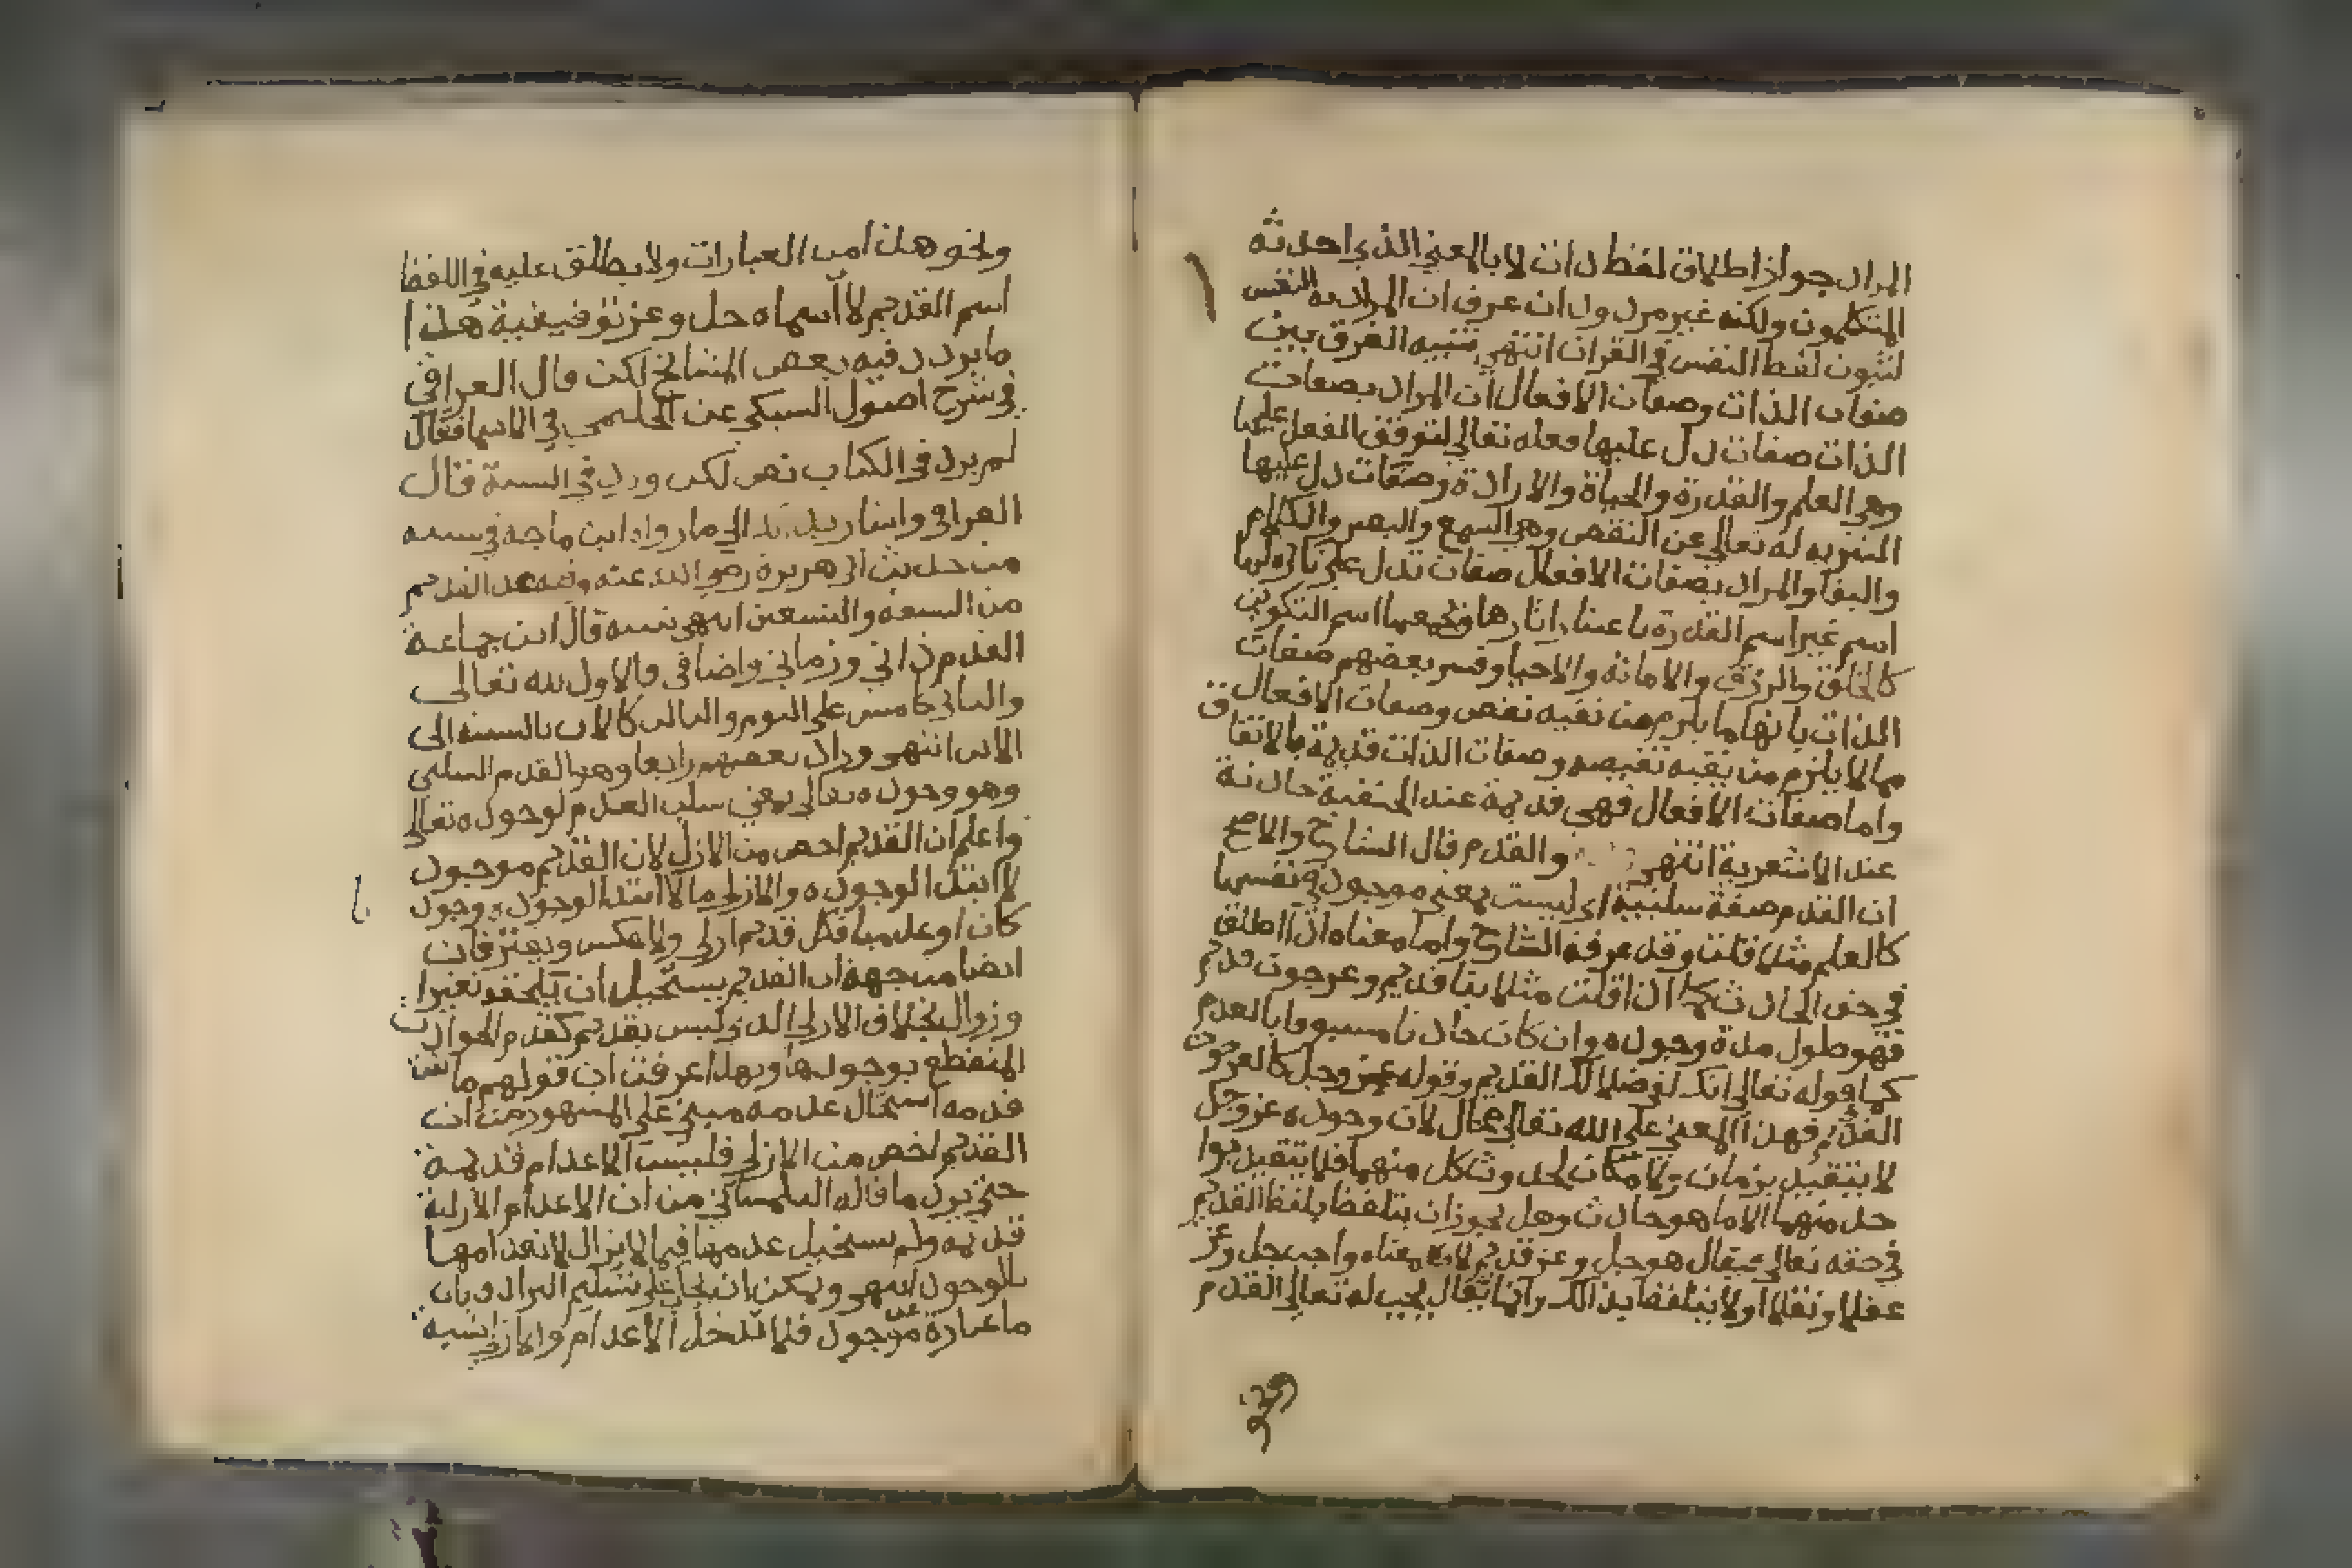 المراد جواز اطلاق لفظ ذات لا بالمعني الذي احدثه
المتكلمون ولكنه غير مردود ان عرف ان المراد به النفس
لثبوت لفظ النفس في القران انتهي تنبيه الفرق بين
صفات الذات وصفات الافعال ان المراد بصفات
الذات صفات دل عليها فعله تعالي لتوقف الفعل عليها
وهي العلم والقدرة والحياة والارادة وصفات دل عليها
التنزيه له تعالي عن النقص وهي السمع والبصر والكلام
والبقا والمراد بصفات الافعال صفات تدل علي تاثير لها
اسم غير اسم القدرة باعتبار اثارها ويجمعها اسم التكوين
كالخلق والرزق والاماتة والاحيا وفسر بعضهم صفات
الذات بانها ما يلزم من نفيه نقص وصفات الافعال
مما لا يلزم من نفيه نقيصه وصفات الذات قديمة بالاتفاق
واما صفات الافعال فهي قديمة عند الحنفية حادثة
عند الاشعرية انتهي والقدم قال الشارح والاصح
ان القدم صفة سلبية اي ليست بمعني موجود في نفسها
كالعلم مثلا قلت وقد عرفه الشارح واما معناه اذا اطلق
في حق الحادث كما اذا قلت مثلا بنا قديم وعرجون قديم
فهو طول مدة وجوده وان كان حادثا مسبوقا بالعدم
كما قوله تعالي انك لفي ضلالك القديم وقوله عز وجل كالعرجون
القديم فهذا المعني علي الله تعالي محال لان وجوده عز وجل
لا يتقيد بزمان ولا مكان لحدوث كل منهما فلا يتقيد بوا
حد منهما الا ما هو حادث وهل يجوز ان يتلفظ بلفظ القديم
في حقه تعالي فيقال هو جل وعز قديم لان معناه واجب جل وعز
عقلا ونقلا او لا يتلفظ بذالك وانما يقال يجب له تعالي القدم
ونحو هذا من العبارات ولا يطلق عليه في اللفظ
اسم القديم لان اسماه جل وعز توقيفية هذا
ما يردد فيه بعض المشايخ لكن قال العراقي
في شرح اصول السبكي عن الحليمي في الاسما فقال
لم يرد في الكتاب نص لكن ورد في السنة قال
العراقي واشار بذلك الي ما رواه ابن ماجه في سننه
من حديث ابي هريرة رضي الله عنه وفيه عد القديم
من التسعة والتسعين انتهي تنبيه قال ابن جماعة
القدم ذاتي وزماني واضافي فالاول لله تعالي
والثاني كامس علي اليوم والثالث كالاب بالنسبة الي
الابن انتهي وزاد بعضهم رابعا وهو القدم السلبي
وهو وجوده تعالي بمعني سلب العدم لوجوده تعالي
واعلم ان القديم اخص من الازلي لان القديم موجود
لا ابتدا لوجوده والازلي ما لا ابتدا لوجوده وجود
كان او عدميا فكل قديم ازلي ولا عكس ويفترقان
ايضا من جهة ان القديم يستحيل ان يلحقه تغير ا
وزوال بخلاف الازلي الذي ليس بقديم كعدم الحوادث
المنقطع بوجودها وبهذا عرفت ان قولهم ما ثبت
قدمه استحال عدمه مبني علي المشهور من ان
القديم اخص من الازلي فليست الاعدام قديمة
حتي يرد ما قاله التلمساني من ان الاعدام الازلية
قديمة ولم يستحيل عدمها فيما لا يزال لانعدامها
بالوجود انتهي ويمكن ان يجاب علي تسليم الترادف بان
ما عبارة عن موجود فلا تدخل الاعدام والازلي